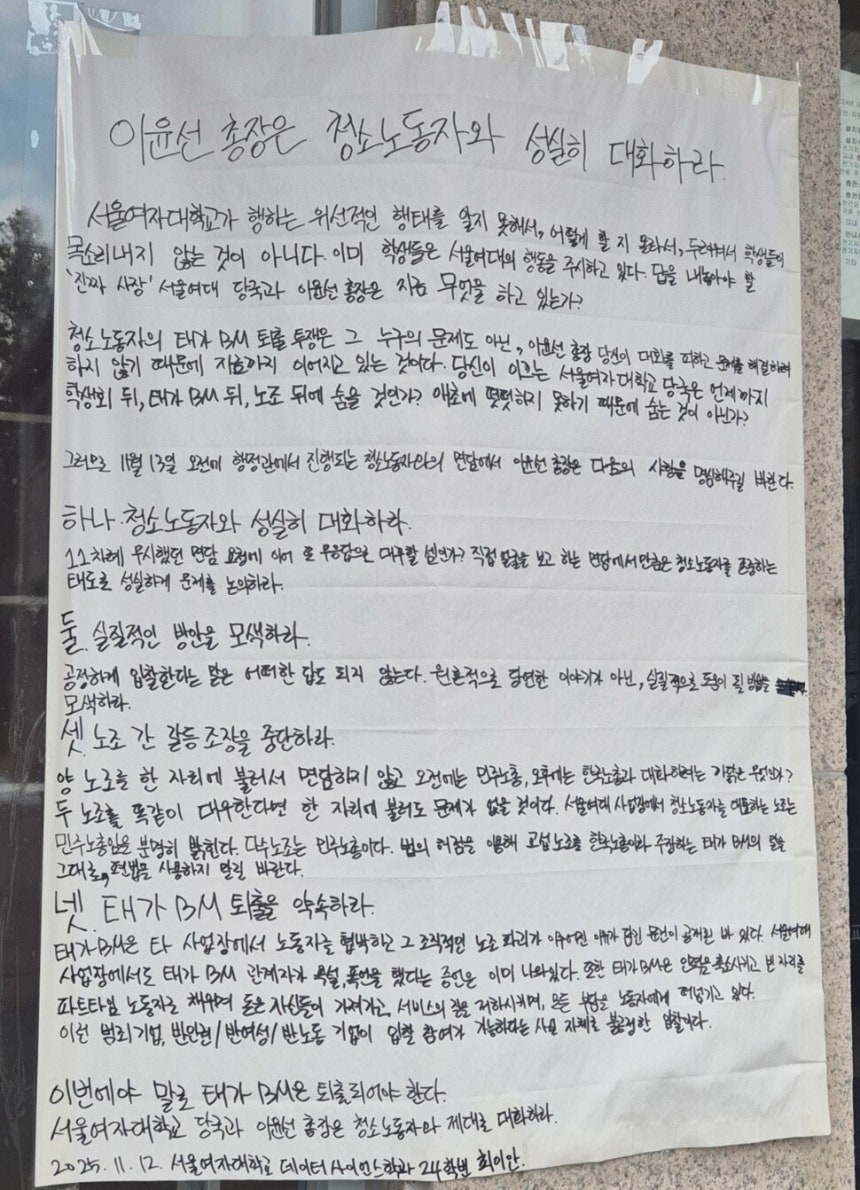 이윤선 총장은 청소노동자와 성실히 대화하라.
서울여자대학교가 행하는 위선적인 행태를 알지 못해서, 어떻게 할 지 몰라서, 두려워서 학생들이
목소리내지 않는 것이 아니다. 이미 학생들은 서울여대의 행동을 주시하고 있다. 답을 내놓아야 할
'진짜 사장' 서울여대 당국과 이윤선 총장은 지금 무엇을 하고 있는가?
청소노동자의 태가BM 퇴출 투쟁은 그 누구의 문제도 아닌, 이윤선 총장 당신이 대화를 피하고 문제를 해결하려
하지 않기 때문에 지금까지 이어지고 있는 것이다. 당신이 이끄는 서울여자대학교 당국은 언제까지
학생회 뒤, 태가BM 뒤, 노조 뒤에 숨을 것인가? 애초에 떳떳하지 못하기 때문에 숨는 것이 아닌가?
그러므로 11월 13일 오전에 행정관에서 진행되는 청소노동자와의 면담에서 이윤선 총장은 다음의 사항을 명심해주길 바란다.
하나. 청소노동자와 성실히 대화하라.
11차례 무시했던 면담 요청에 이어 또 무응답으로 대우할 셈인가? 직접 얼굴을 보고 하는 면담에서만큼은 청소노동자를 존중하는
태도로 성실하게 문제를 논의하라.
둘. 실질적인 방안을 모색하라.
공정하게 입찰한다는 말은 어떠한 답도 되지 않는다. 원론적으로 당연한 이야기가 아닌, 실질적으로 도움이 될 방법을
모색하라.
셋. 노조 간 갈등 조장을 중단하라.
양 노조를 한 자리에 불러서 면담하지 않고 오전에는 민주노총, 오후에는 한국노총과 대화하려는 까닭은 무엇인가?
두 노조를 똑같이 대우한다면 한 자리에 불러도 문제가 없을 것이다. 서울여대 사업장에서 청소노동자를 대표하는 노조는
민주노총임을 분명히 밝힌다. 다수노조는 민주노총이다. 법의 허점을 이용해 교섭노조를 한국노총이라 주장하는 태가BM의 말을
그대로, 편법을 사용하지 말길 바란다.
넷. 태가BM 퇴출을 약속하라.
태가BM은 타 사업장에서 노동자를 협박하고 그 조직적인 노조 파괴가 이루어진 이유가 담긴 문건이 공개된 바 있다. 서울여대
사업장에서도 태가BM 관계자가 욕설, 폭언을 했다는 증언은 이미 나와있다. 또한 태가BM은 인력을 축소시키고 빈 자리를
파트타임 노동자로 채우며 돈은 자신들이 가져가고, 서비스의 질을 저하시키며, 모든 부담을 노동자에게 떠넘기고 있다.
이런 범죄기업, 반인권/반여성/반노동 기업이 입찰 참여가 가능하다는 사실 자체로 불공정한 입찰이다.
이번에야 말로 태가BM은 퇴출되어야 한다.
서울여자대학교 당국과 이윤선 총장은 청소노동자와 제대로 대화하라.
2025. 11. 12. 서울여자대학교 데이터사이언스학과 24학번 최이안.